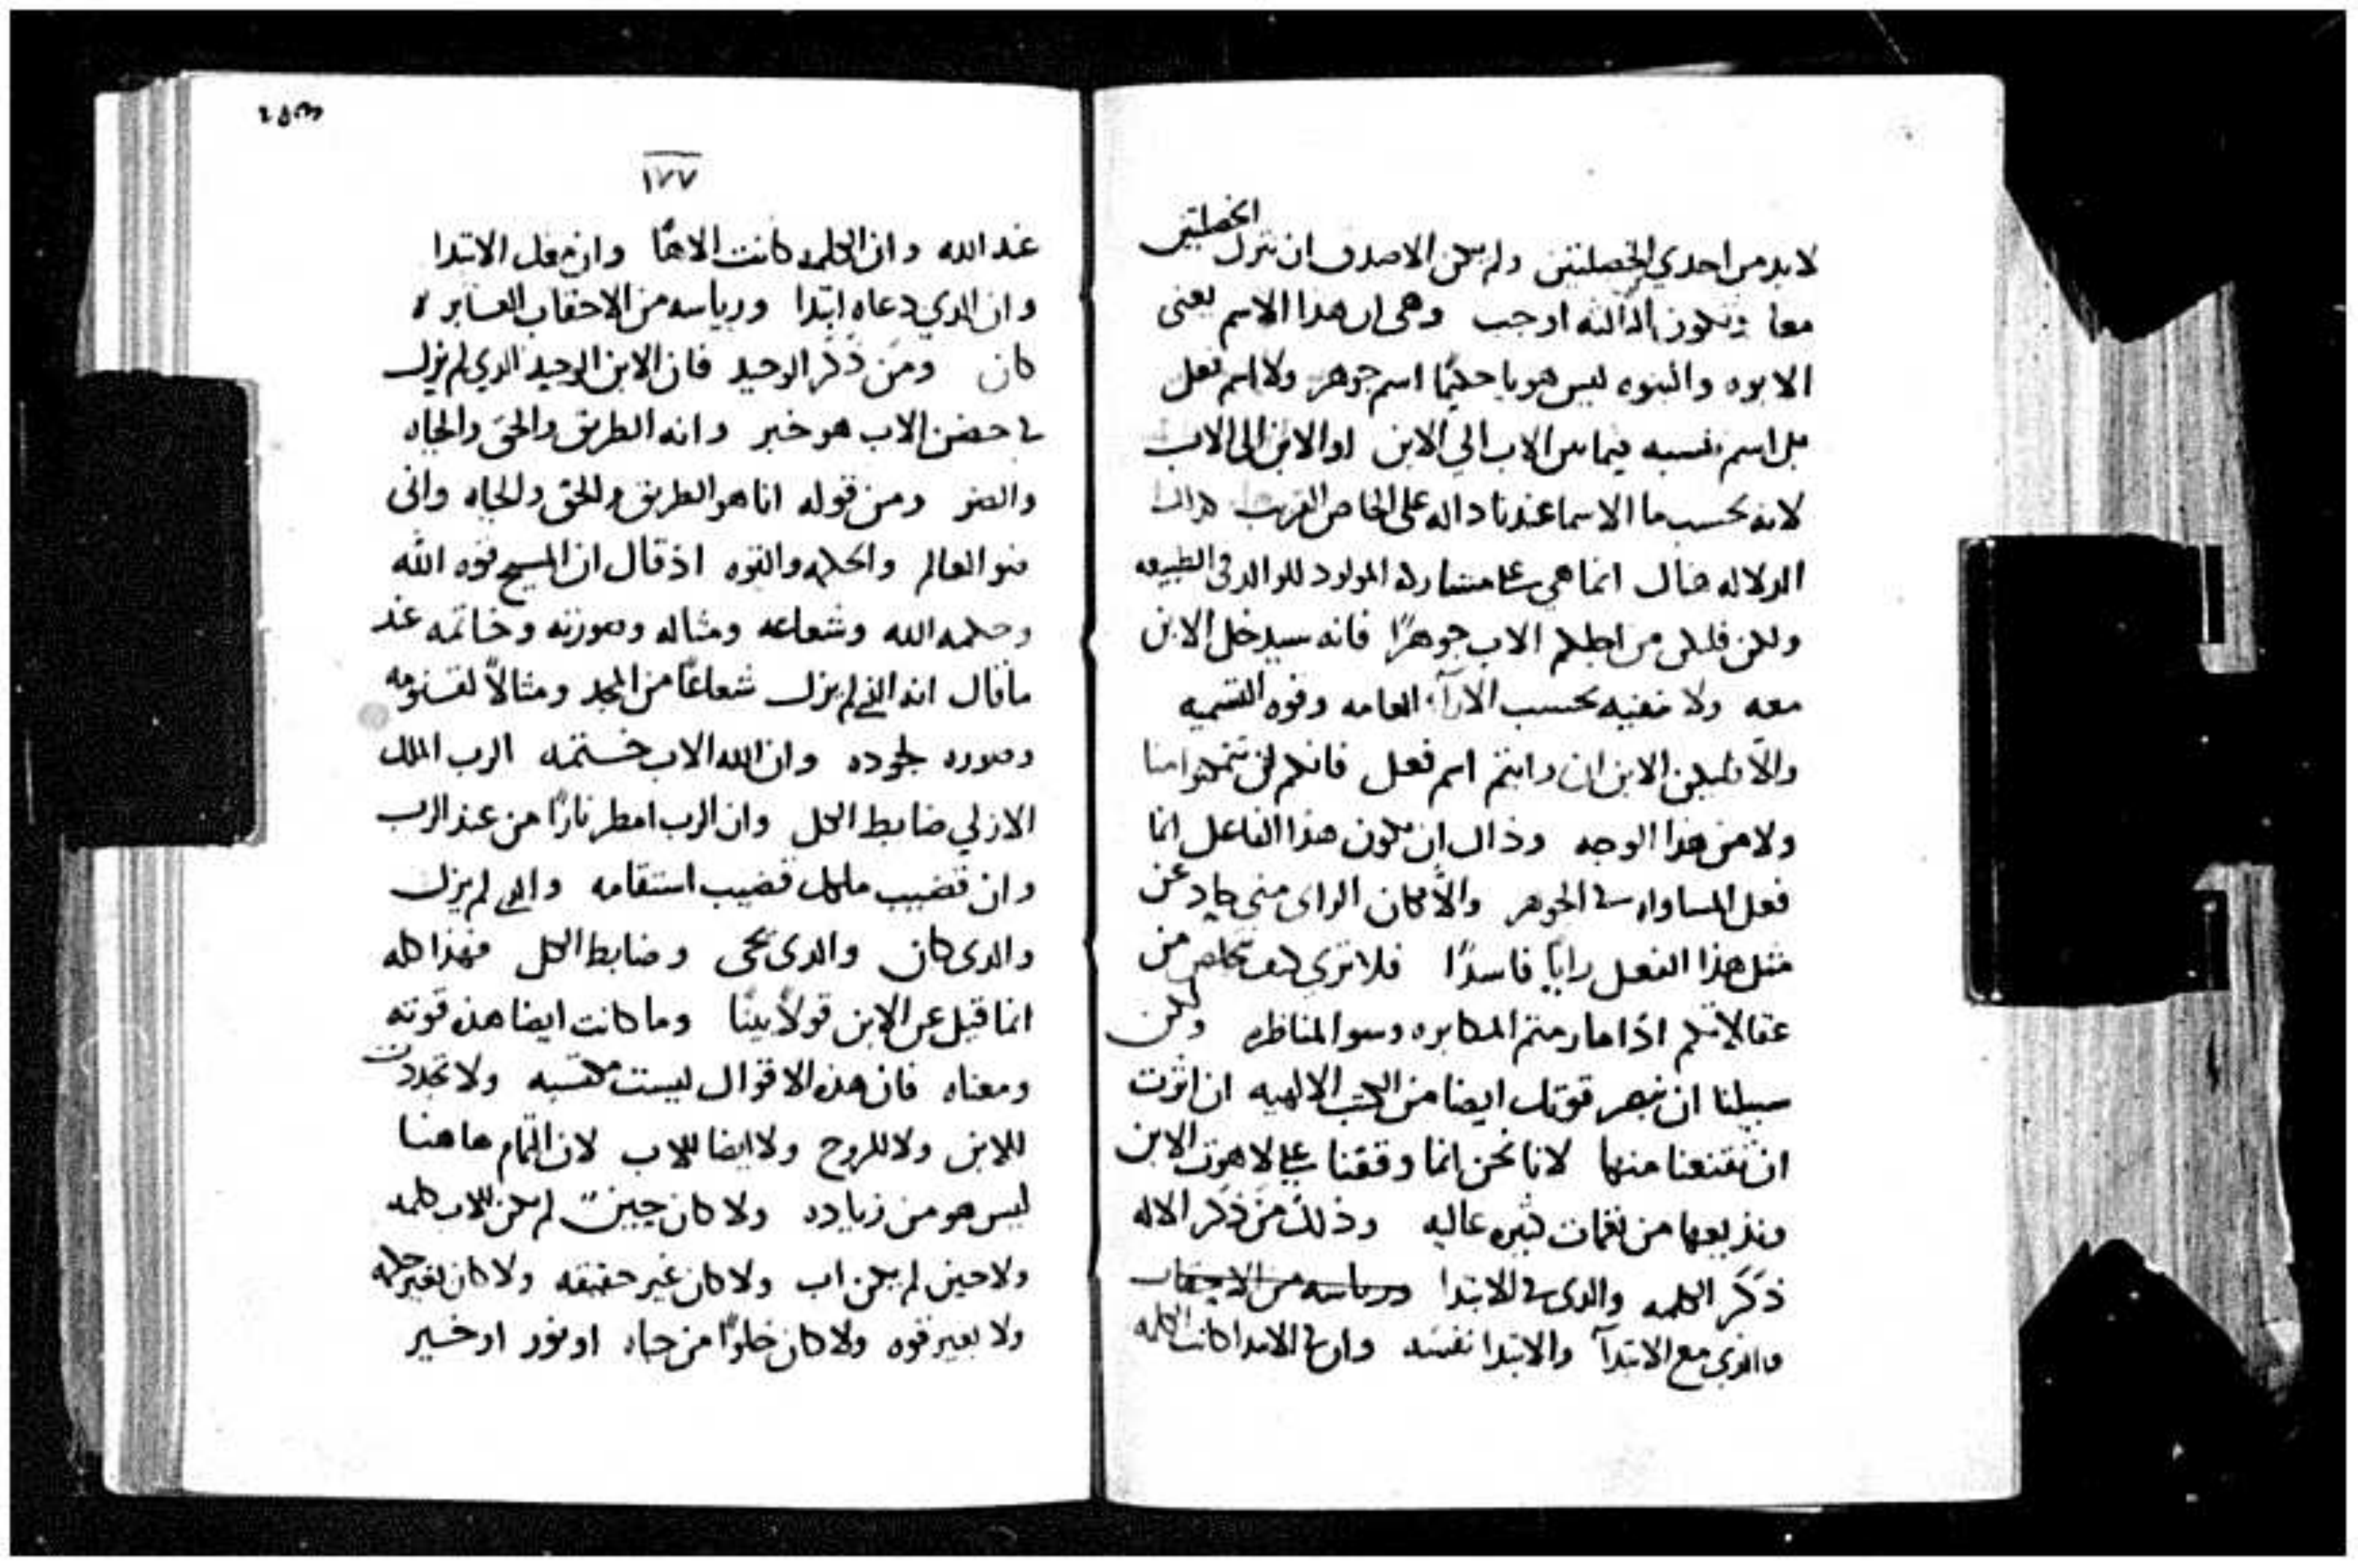 لابد من احدي الخصلتين ولم يكن الاصدق ان نترك الخصلتين
معا وتكون الثالثه اوجب وهى ان هدا الاسم يعنى
الابوه والبنوه ليس هو يا حكيمًا اسم جوهر ولا اسم فعل
بل اسم نسبه فيما بين الاب الي الابن او الابن الى الاب
لانه بحسب ما الاسما عندنا داله على الخاص القريب
الدلاله هناك انما هي على مشاركه المولود للوالد فى الطبيعه
ولكن فليكن من اجلكم الاب جوهرًا فانه سيدخل الابن
معه ولا بحسب الآرآء العامه وقوه التسميه
والا فليكن الابن ان رايتم اسم فعل فانكم لن منا
ولا من هذا الوجه وذاك ان يكون هذا الفاعل انما
فعل المساواه في الجوهر والا كان الراى منى عن
مثل هذا الفعل رايًا فاسدًا فلا نرى كيف من
اذا ما رمتم المكابره وسو المناظره ولكن
سبيلنا ان نبهر قوتك ايضا من الكتب الالهيه ان اثرت
ان تقنعنا منها لانا نحن انما وقفنا على لاهوت الابن
ونذيعها من نغمات كثيره عاليه وذلك من ذكر الاله
ذكر الكلمه والدى في الابتدا ورياسه من الاحقاب
والذي مع الابتدآ والابتدا نفسه وان في الابتدا كانت الكلمه
١٧٧
عند الله وان الكلمه كانت الاهًا وان معك الابتدا
وان الدي دعاه ابتدا ورياسه من الاحقاب
كان ومن ذكر الوحيد فان الابن الوحيد الدي لم يزل
في حضن الاب هو خبر وانه الطريق والحق والحياه
والضو ومن قوله انا هو الطريق والحق والحياه وانى
ضو العالم والحكمه والقوه اذ قال ان المسيح قوه الله
وحكمه الله وشعاعه ومثاله وصورته وخاتمه عند
ما قال انه الذي لم يزل شعاعًا من المجد ومثالاً لقنومه
وصوره لجوده وان الله الاب ختمه الرب الملك
الازلي ضابط الكل وان الرب امطر نارًا من عند الرب
وان قضيب ملكك قضيب استقامه والدي لم يزل
والدى كان والدى يجى وضابط الكل فهذا كله
انما قيل عن الابن قولاً بينًا وما كانت ايضا هذه قوته
ومعناه فان هذه الاقوال ليست مكتسبه ولا تجددت
للابن ولا للروح ولا ايضا للاب لان التمام هاهنا
ليس هو من زياده ولا كان حين لم يكن للاب كلمه
ولا حين لم يكن اب ولا كان غير حقيقه ولا كان بغير حكمه
ولا بغير قوه ولا كان خلوًا من حياه او نور او خير